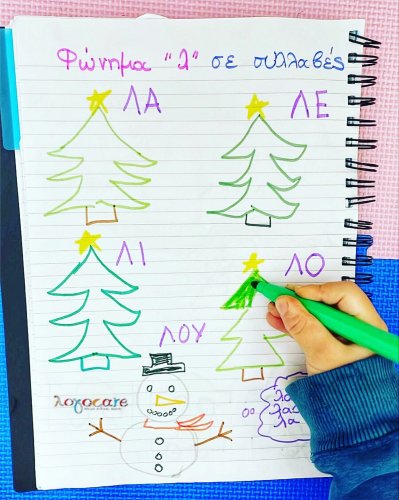 Φώνημα "λ" σε συλλαβές
ΛΑ
ΛΕ
ΛΙ
ΛΟ
ΛΟΥ
λογοcare
λα